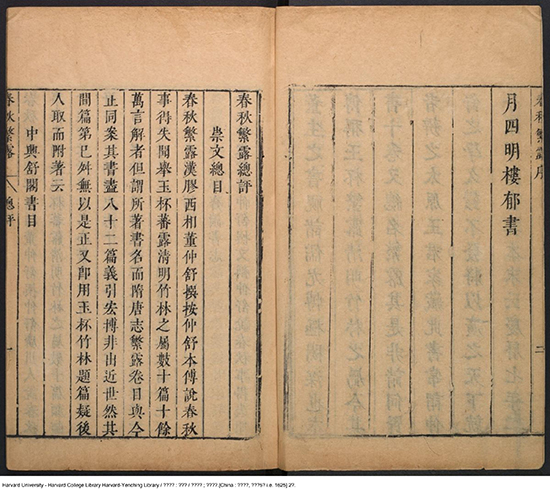 春秋繁露序
月四明樓郁書
二
春秋繁露總評
崇文總目
春秋繁露漢膠西相董仲舒撰按仲舒本傳說春秋
事得失聞舉玉杯蕃露清明竹林之屬數十篇十餘
萬言解者但謂所著書名而隋唐志繁露卷目與今
正同案其書盡八十二篇義引宏博非出近世然其
間篇第已舛無以是正又卽用玉杯竹林題篇疑後
人取而附著云
中興舒閣書目
春秋繁露
總評
一
Harvard University - Harvard College Library Harvard-Yenching Library / ???? : ??? / ???? ; ???? [China : ????, ???5? i.e. 1625] 2?.